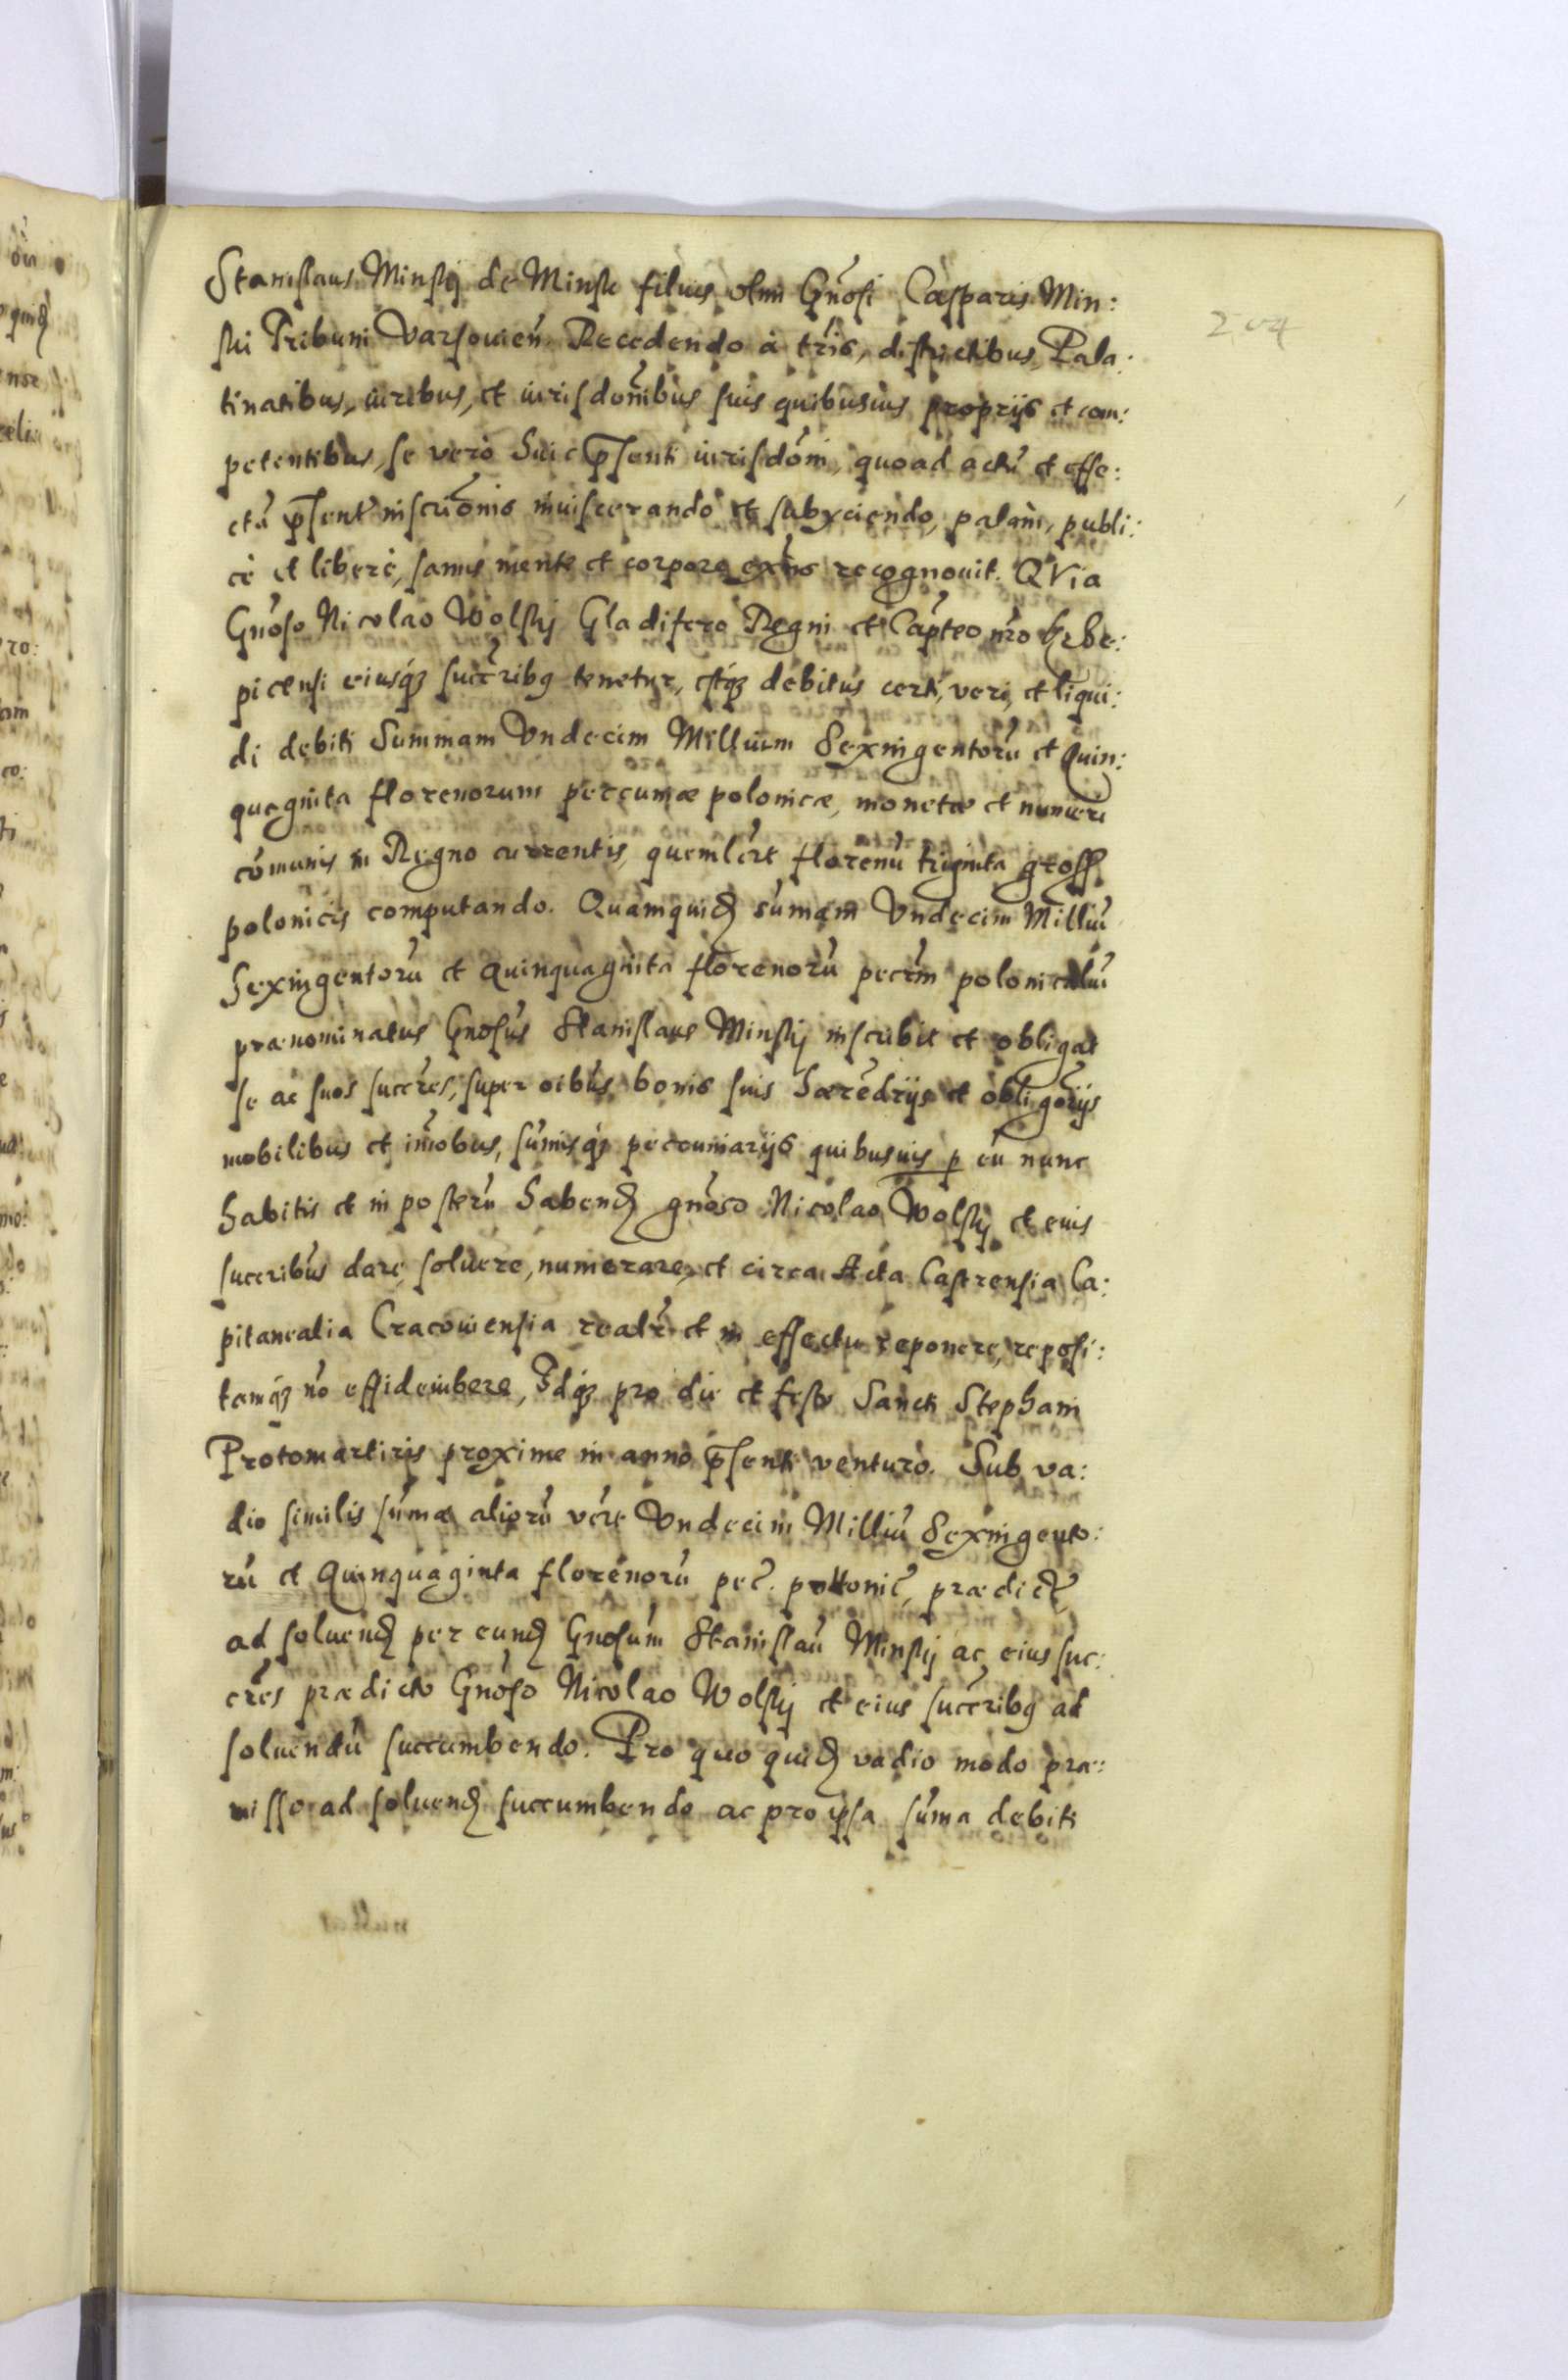 204
Stanislaus Minskj de Minsk filius olim Gnosi Casparis Min:
ski Tribuni Varsouien Recedendo à tris, districtibus, Pala:
tinatibus, iuribus, et iurisdonibus suis quibusuis proprijs et com:
petentibus, se verò huic psenti iurisdoni, quoad actu et effe:
ctu psent inscrionis inuiscerando et subijciendo, palàm, publi:
cè et liberè, sanus mente et corpore exns recognouit. QVia
Gnoso Nicolao Wolskj Gladifero Regni et Capteo nro Krze:
picensi eiusq succribq tenetur, estq debitus certi, veri, et liqui:
di debiti Summam Vndecim Millium Sexingentoru et Quin:
quaginta florenorum pecuniæ polonicæ, monetæ et numeri
comunis in Regno currentis, quemlert florenu triginta gross
polonicis computando. Quamquid sumam Vndecim Milliu
Sexingentoru et Quinquaginta florenoru pecun polonicaliu
prænominatus Gnosus Stanislaus Minskj inscribit et obligat
se ac suos succres, super oibus bonis suis hæredrijs et obligorijs
mobilibus et imobus, sumisq pecuniarijs quibusuis p eu nunc
habitis et in posteru habend gnoso Nicolao Wolskj et eius
succribus dare, soluere, numerare, et circa Acta Castrensia Ca:
pitanealia Cracouiensia realr et in effectu reponere, reposi:
tamq no effideiubere, Idq pro die et festo Sancti Stephani
Protomartiris proxime in anno psenti venturo. Sub va:
dio similis sumæ alioru vere Vndecim Milliu Sexingento:
ru et Quinquaginta florenoru pec. pollonic, prædict,
ad soluend per eund Gnosum Stanislau Minskj ac eius suc:
cres prædicto Gnoso Nicolao Wolskj et eius succribq ad
soluendu succumbendo. Pro quo quid vadio modo præ:
misso ad soluend succumbendo ac pro ipsa suma debiti